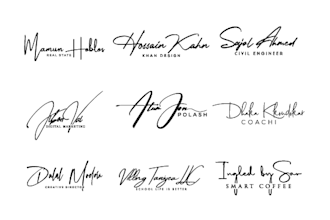 Mamun Hobles
REAL STATE
Hossain Kahn
KHAN DESIGN
Sajol Ahmed
CIVIL ENGINEER
DIGITAL MARKETING
Atim Jon
POLASH
Dhaka Khondokar
COACHI
Dalal Modon
CREATIVE DIRECTOR
LLC
SCHOOL LIFE IS BETTER
Ingled by Sar
SMART COFFEE